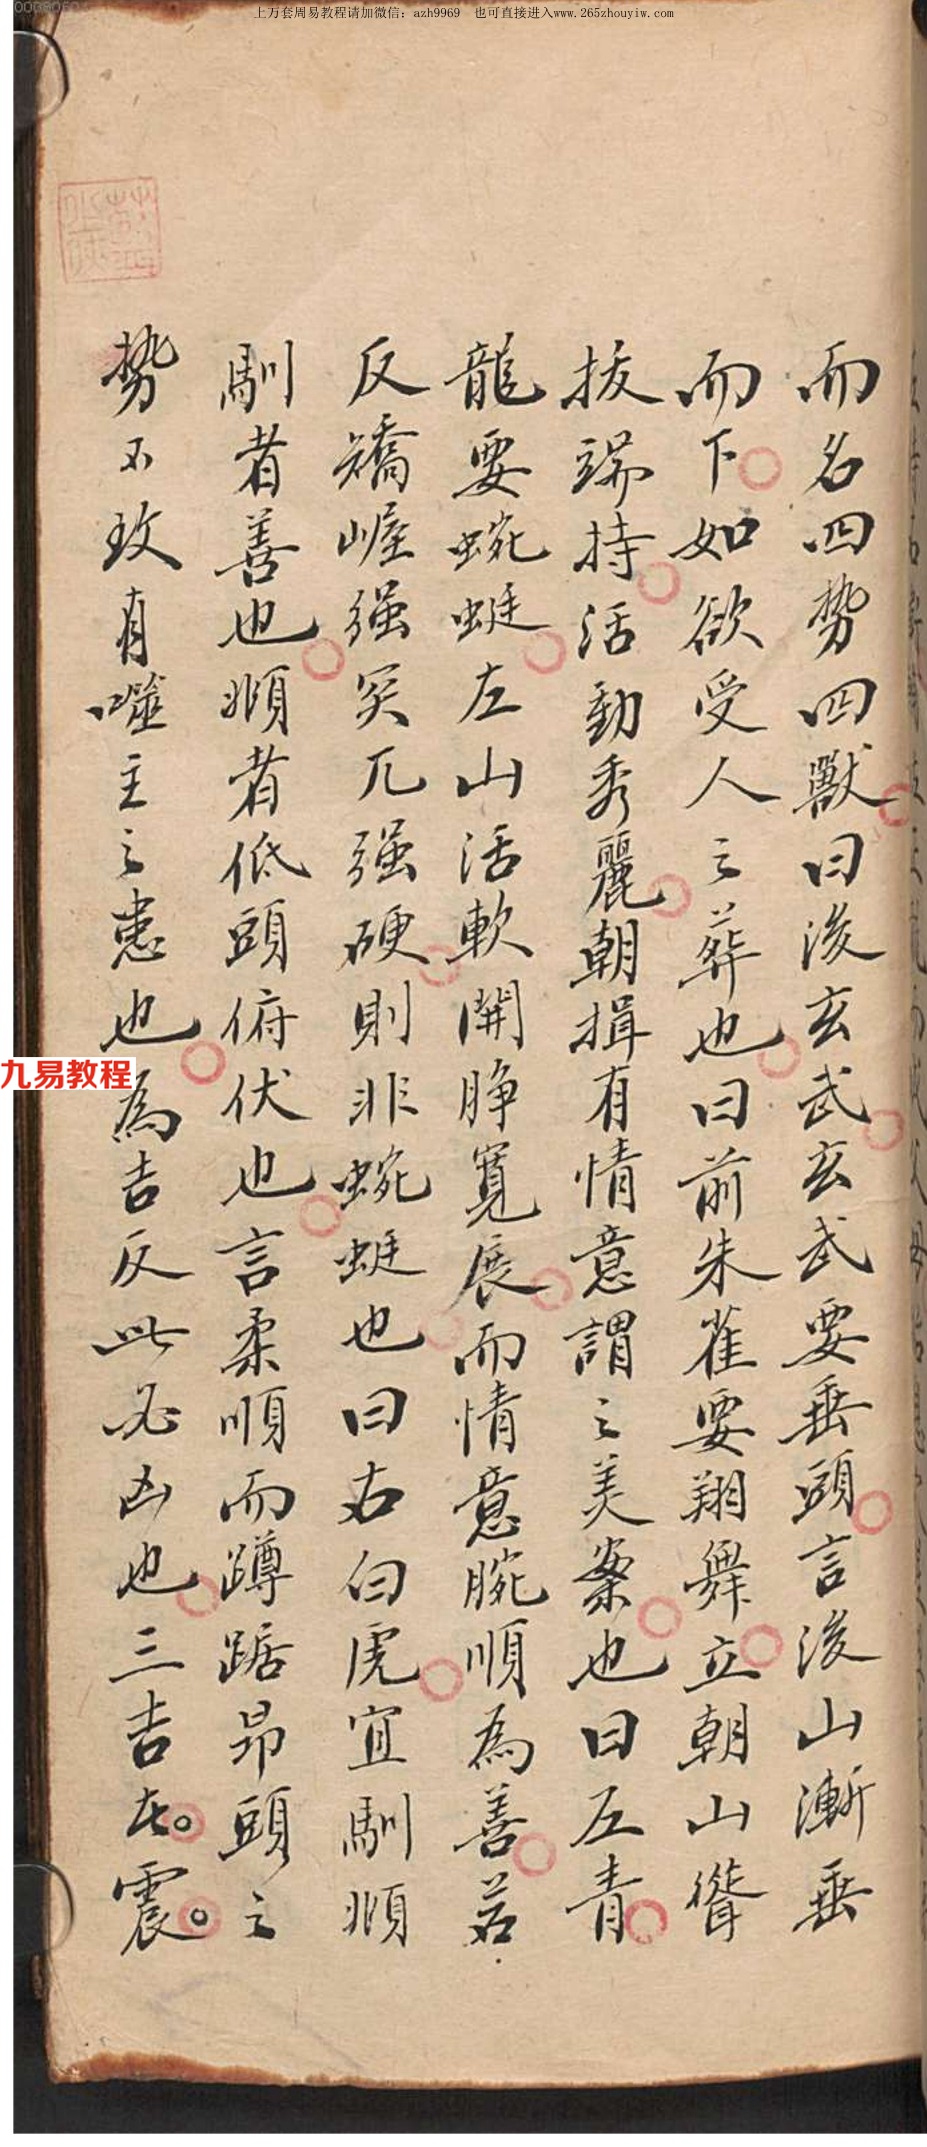 上万套周易教程请加微信：azh9969 也可直接进入www.265zhouyiw.com
而名四势四獸曰後玄武玄武要垂頭言後山漸垂
而下如欲受人之葬也曰前朱雀要翔舞立朝山聳
拔端持活動秀麗朝揖有情意謂之美案也曰左青
龍要蜿蜓左山活軟開睜寬展而情意腕順為善若
反矯崛强突兀强硬則非蜿蜓也曰右白虎宜馴頫
馴者善也頫者低頭俯伏也言柔順而蹲踞昂頭之
势不攻有噬主之患也為吉反此必凶也三吉在震
九易教程